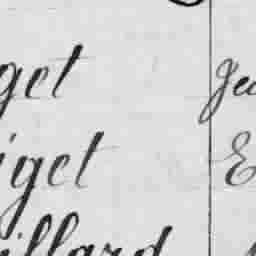 get Geo
iget E
illard